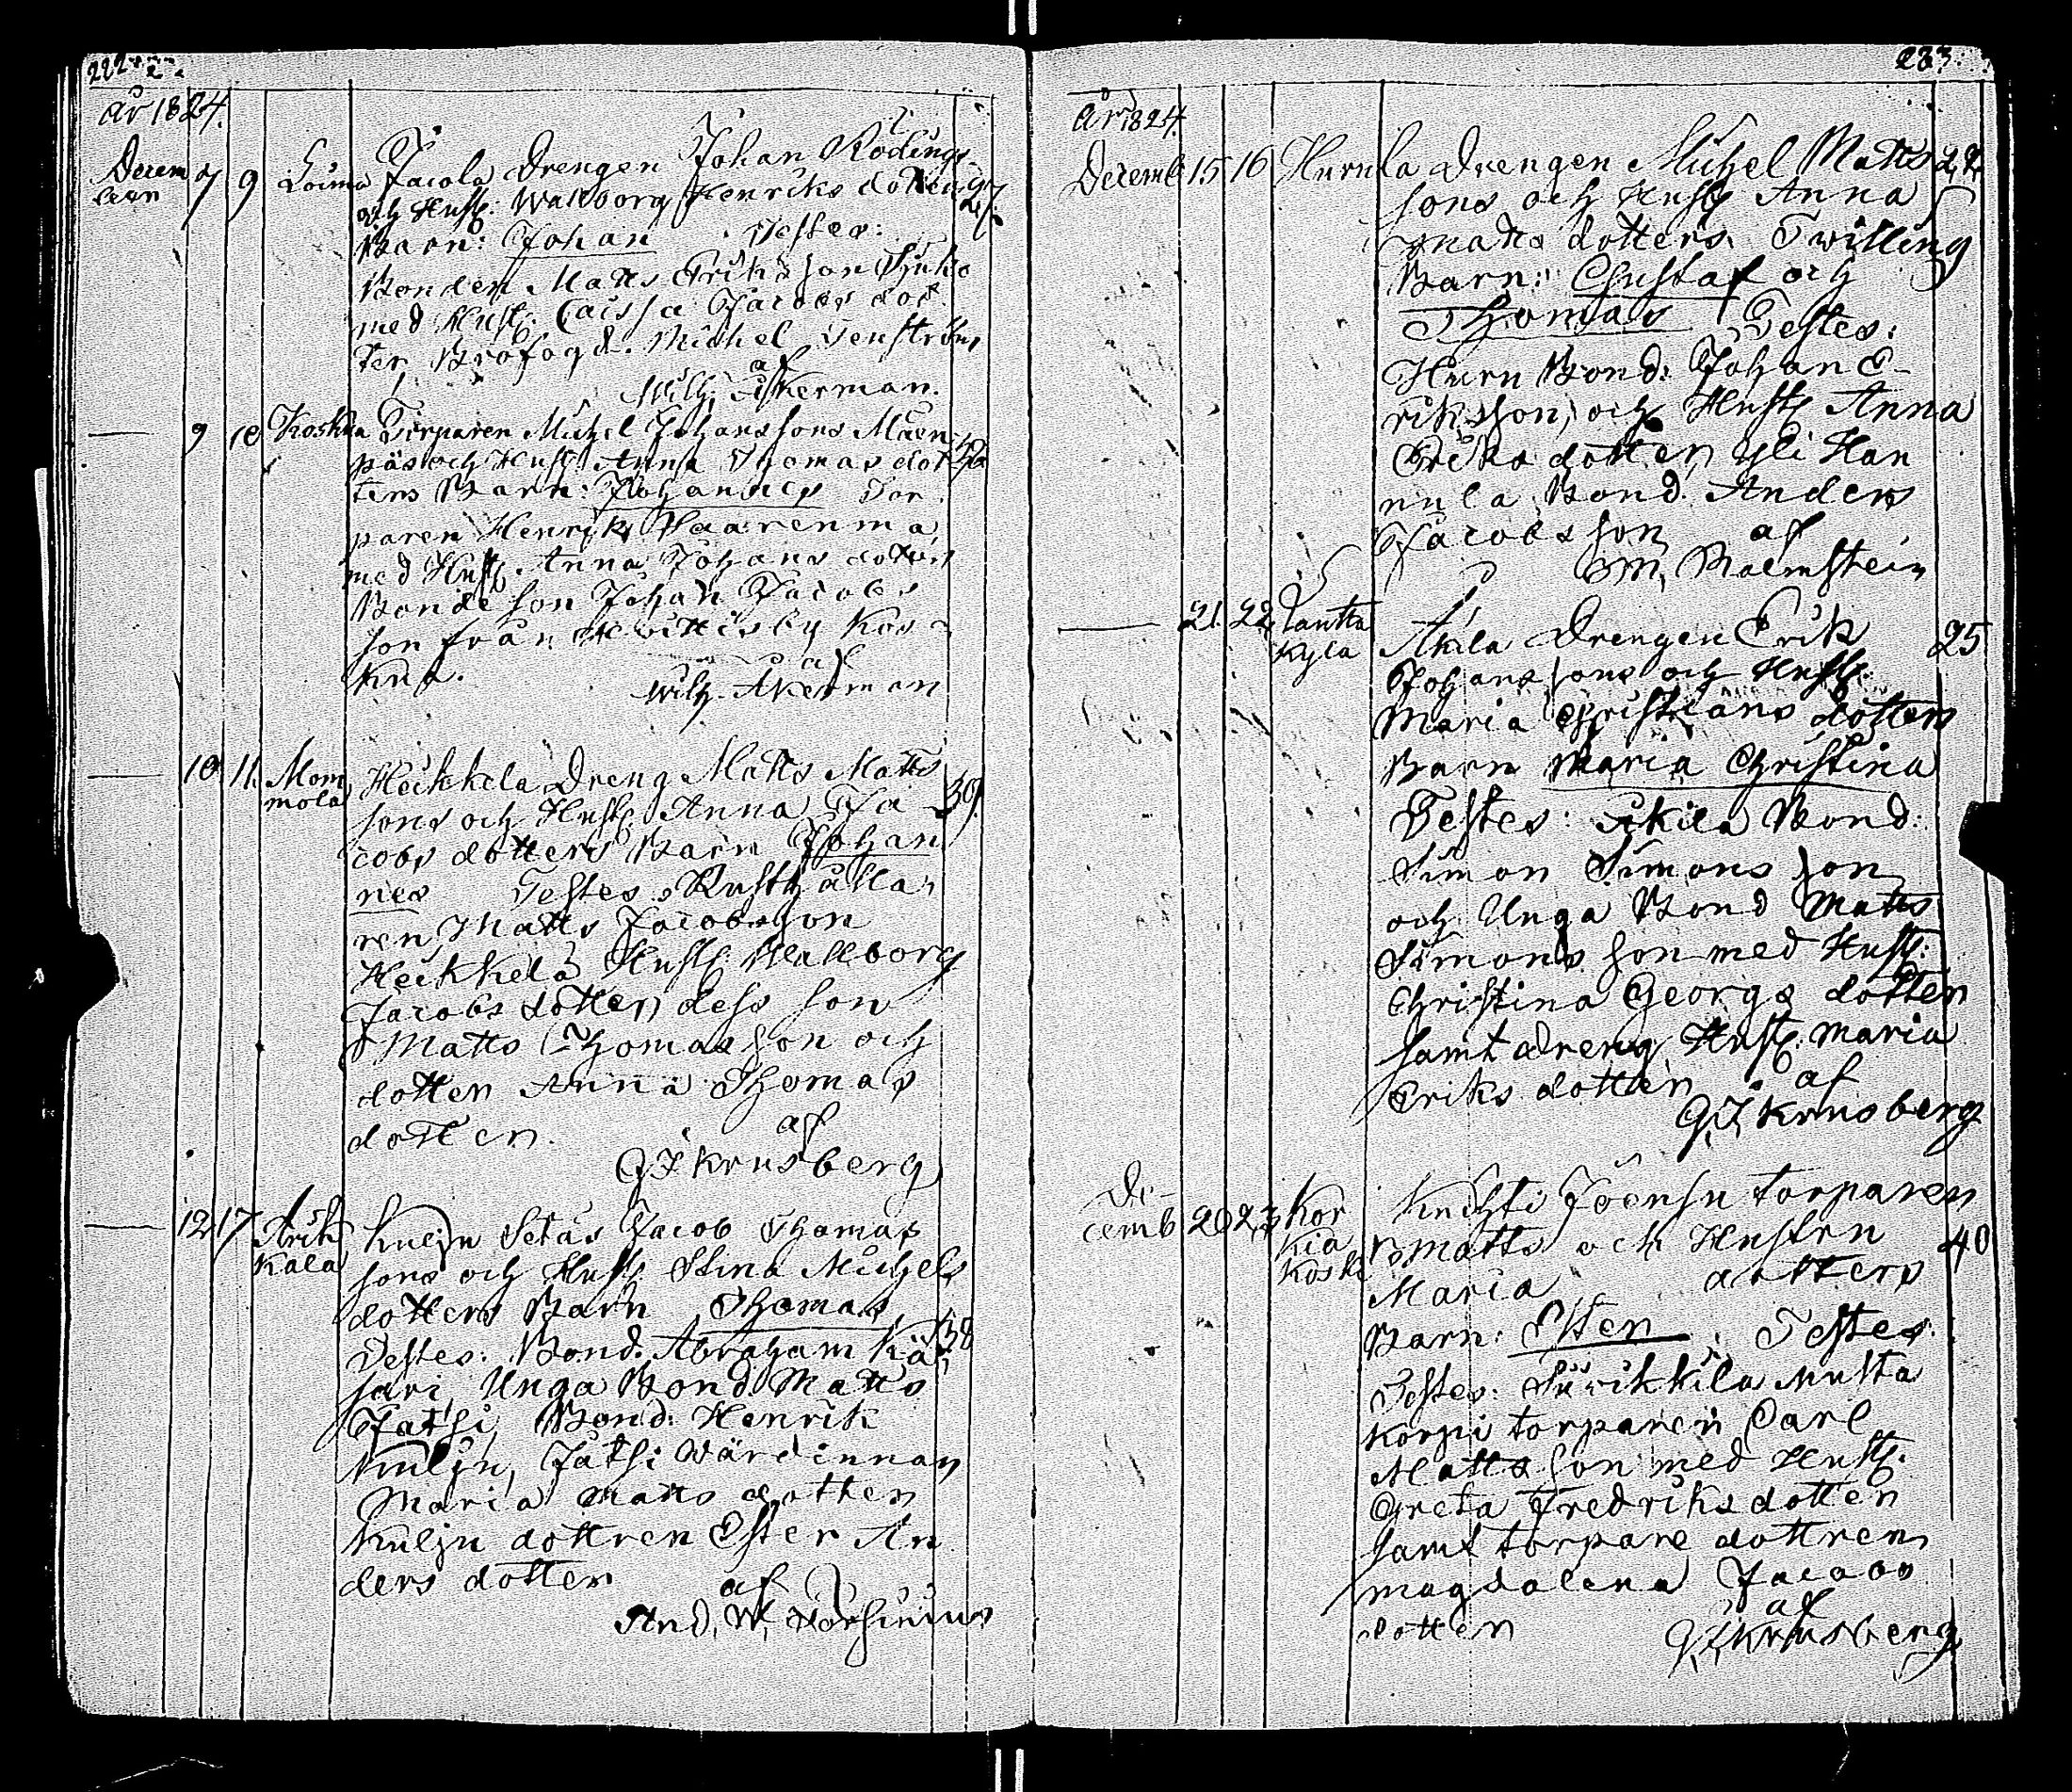 222
år 1824.
Decem 7 9 Loima Jacola Drengen Johan Rodings
bern och Hust: Wallborg Henriks dotters 27
Barn: Johan Testes:
Bonden Matts Erikson
med Hust. Caissa Jacobs dot
ter Brofogd. Michel Tenström
af
Wilh. Åkerman.
9 10 Koskua Torparen Michel Johanssons Mäen
pää och Hust. Anna Thomas dot 36
ters Barn: Johannes Tor
paren Henrik Haarenma
med Hust. Anna Johans dotter
Bonde son Johan Jacobs
son från by Kos
kua.
af
Wilh. Åkerman
10 11. Mom Heikkela Dreng Matts Matts
mola sons och Hust. Anna Ja 39.
cobs dotters Barn Johan
nes Testes. Rusthålla
ren Matts Jacobsson
Heikkela Hust. Wallborg
Jacobs dotter dess son
Matts Thomasson och
dotter Anna Thomas
dotter. af
G J Krusberg
12 17 Arik Kulju Setas Jacob Thomas
kala sons och Hust. Stina Michels
dotters Barn Thomas 38
Testes. Bond. Abraham Kä
sari, Unga Bond Matts
Jatsi, Bond: Henrik
Kulju, Jatsi Wärdinnan
Maria Matts dotter
Kulju dottren Ester An
ders dotter. af
And. W. Forsinius
223.
År 1824.
Decemb 15 16 Hurula Drengen Michel Matts 22
sons och Hust Anna
Matts dotters Twilling
Barn: Gustaf och
Thomas Testes:
Huru Bond: Johan E-
riksson, och Hust. Anna
Eriks dotter Yli Han
nula Bond. Anders
Jacobsson af
M. Malmstein
21. 22 Lautta Äkila Drengen Erik 25
kyla Johans sons och Hust.
Maria Christians dotters
Barn Maria Christina
Testes: Äkila Bond:
Simon Simons son
och Unga Bond Matts
Simons son med Hust:
Christina Georgs dotter
samt dreng Hust. Maria
Eriks dotter af
G. J. Krusberg
De-
cemb 20 23 Kor Knihti Joensu torparen
kia Matts och Hustru 40
koski Maria dotters
Barn: Ester. Testes.
Testes: Surikkila Musta
korpi torparen Carl
Matts son med Hust.
Greta Fredriks dotter
samt torpare dottren
Magdalena Jacobs
dotter af
G. J. Krusberg